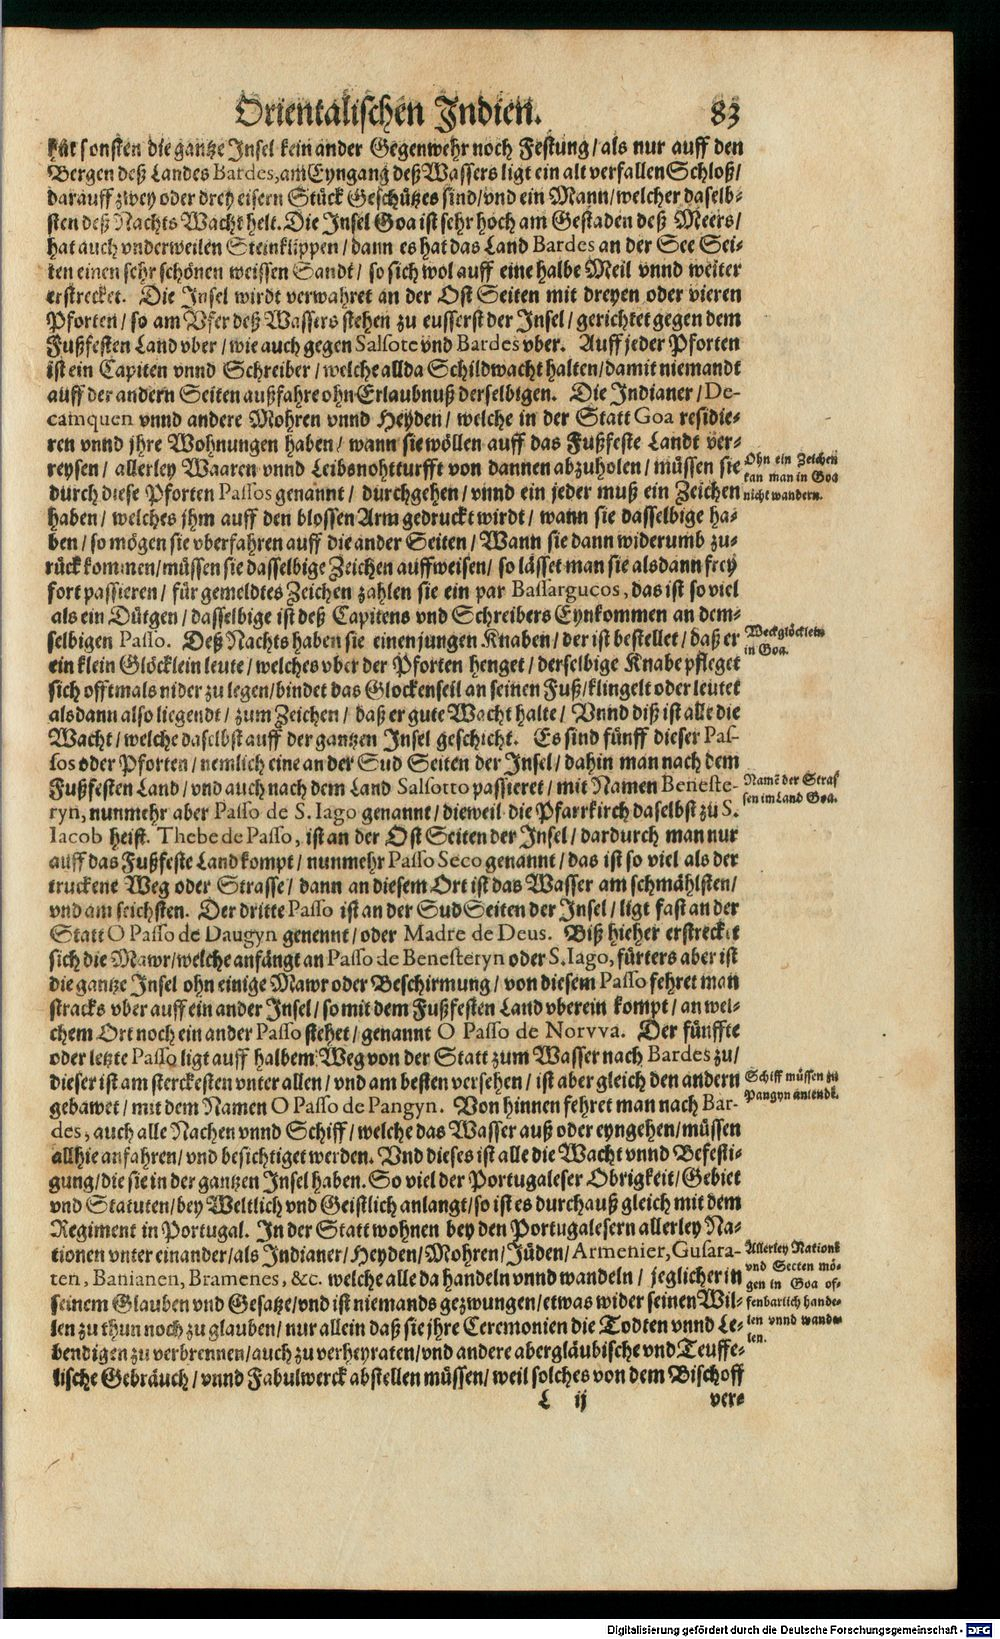 Orientalischen Indien. 83
hat sonsten die gantze Insel kein ander Gegenwehr noch Festung/als nur auff den
Bergen deß Landes Bardes, am Eyngang deß Wassers ligt ein alt verfallen Schloß/
darauff zwey oder drey eisern Stück Geschützes sind/vnd ein Mann/welcher daselb-
sten deß Nachts Wacht helt. Die Insel Goa ist sehr hoch am Gestaden deß Meers/
hat auch vnderweilen Steinklippen/dann es hat das Land Bardes an der See Sei-
ten einen sehr schönen weissen Sandt/so sich wol auff eine halbe Meil vnnd weiter
erstrecket. Die Insel wirdt verwahret an der Ost Seiten mit dreyen oder vieren
Pforten/so am Vfer deß Wassers stehen zu eusserst der Insel/gerichtet gegen dem
Fußfesten Land vber/wie auch gegen Salsote vnd Bardes vber. Auff jeder Pforten
ist ein Capiten vnnd Schreiber/welche allda Schildwacht halten/damit niemandt
auff der andern Seiten außfahre ohn Erlaubnuß derselbigen. Die Indianer/De-
camquen vnnd andere Mohren vnnd Heyden/welche in der Statt Goa residie-
ren vnnd jhre Wohnungen haben/wann sie wöllen auff das Fußfeste Landt ver-
reysen/allerley Waaren vnnd Leibsnohtturfft von dannen abzuholen/müssen sie
durch diese Pforten Passos genannt/durchgehen/vnnd ein jeder muß ein Zeichen
haben/welches jhm auff den blossen Arm gedruckt wirdt/wann sie dasselbige ha-
ben/so mögen sie vberfahren auff die ander Seiten/Wann sie dann widerumb zu-
rück kommen/müssen sie dasselbige Zeichen auffweisen/so lässet man sie alsdann frey
fort passieren/für gemeldtes Zeichen zahlen sie ein par Bassarucos, das ist so viel
als ein Dütgen/dasselbige ist deß Capitens vnd Schreibers Eynkommen an dem-
selbigen Passo. Deß Nachts haben sie einen jungen Knaben/der ist bestellet/daß er
ein klein Glöcklein leute/welches vber der Pforten henget/derselbige Knabe pfleget
sich offtmals nider zu legen/bindet das Glockenseil an seinen Fuß/klingelt oder leutet
alsdann also liegendt/zum Zeichen/daß er gute Wacht halte/Vnnd diß ist alle die
Wacht/welche daselbst auff der gantzen Insel geschicht. Es sind fünff dieser Pas-
sos oder Pforten/nemlich eine an der Sud Seiten der Insel/dahin man nach dem
Fußfesten Land/vnd auch nach dem Land Salsotto passieret/mit Namen Beneste-
ryn, nunmehr aber Passo de S. Iago genannt/dieweil die Pfarrkirch daselbst zu S.
Iacob heist. Thebe de Passo, ist an der Ost Seiten der Insel/dardurch man nur
auff das Fußfeste Land kompt/nunmehr Passo Seco genannt/das ist so viel als der
truckene Weg oder Strasse/dann an diesem Ort ist das Wasser am schmählsten/
vnd am seichsten. Der dritte Passo ist an der Sud Seiten der Insel/ligt fast an der
Statt O Passo de Daugyn genennt/oder Madre de Deus. Biß hieher erstrecket
sich die Mawr/welche anfängt an Passo de Benesteryn oder S. Iago, fürters aber ist
die gantze Insel ohn einige Mawr oder Beschirmung/von diesem Passo fehret man
stracks vber auff ein ander Insel/so mit dem Fußfesten Land vberein kompt/an wel-
chem Ort noch ein ander Passo stehet/genannt O Passo de Norvva. Der fünffte
oder letzte Passo ligt auff halbem Weg von der Statt zum Wasser nach Bardes zu/
dieser ist am sterckesten vnter allen/vnd am besten versehen/ist aber gleich den andern
gebawet/mit dem Namen O Passo de Pangyn. Von hinnen fehret man nach Bar-
des, auch alle Nachen vnnd Schiff/welche das Wasser auß oder eyngehen/müssen
allhie anfahren/vnd besichtiget werden. Vnd dieses ist alle die Wacht vnnd Befesti-
gung/die sie in der gantzen Insel haben. So viel der Portugaleser Obrigkeit/Gebiet
vnd Statuten/bey Weltlich vnd Geistlich anlangt/so ist es durchauß gleich mit dem
Regiment in Portugal. In der Statt wohnen bey den Portugalesern allerley Na-
tionen vnter einander/als Indianer/Heyden/Mohren/Jüden/Armenier, Gusara-
ten, Banianen, Bramenes, &c. welche alle da handeln vnnd wandeln/jeglicher in
seinem Glauben vnd Gesatze/vnd ist niemands gezwungen/etwas wider seinen Wil-
len zu thun noch zu glauben/nur allein daß sie jhre Ceremonien die Todten vnnd Le-
bendigen zu verbrennen/auch zu verheyraten/vnd andere abergläubische vnd Teuffe-
lische Gebräuch/vnnd Fabulwerck abstellen müssen/weil solches von dem Bischoff
L ij ver-
Ohn ein Zeichen
kan man in Goa
nicht wandern.
Weckglöcklein
in Goa.
Namē der Stras
sen im Land Goa.
Schiff müssen zu
Pangyn anlendē.
Allerley Nations
vnd Secten mö-
gen in Goa of-
fenbarlich hande-
len vnnd wande-
len.
Digitalisierung gefördert durch die Deutsche Forschungsgemeinschaft - DFG